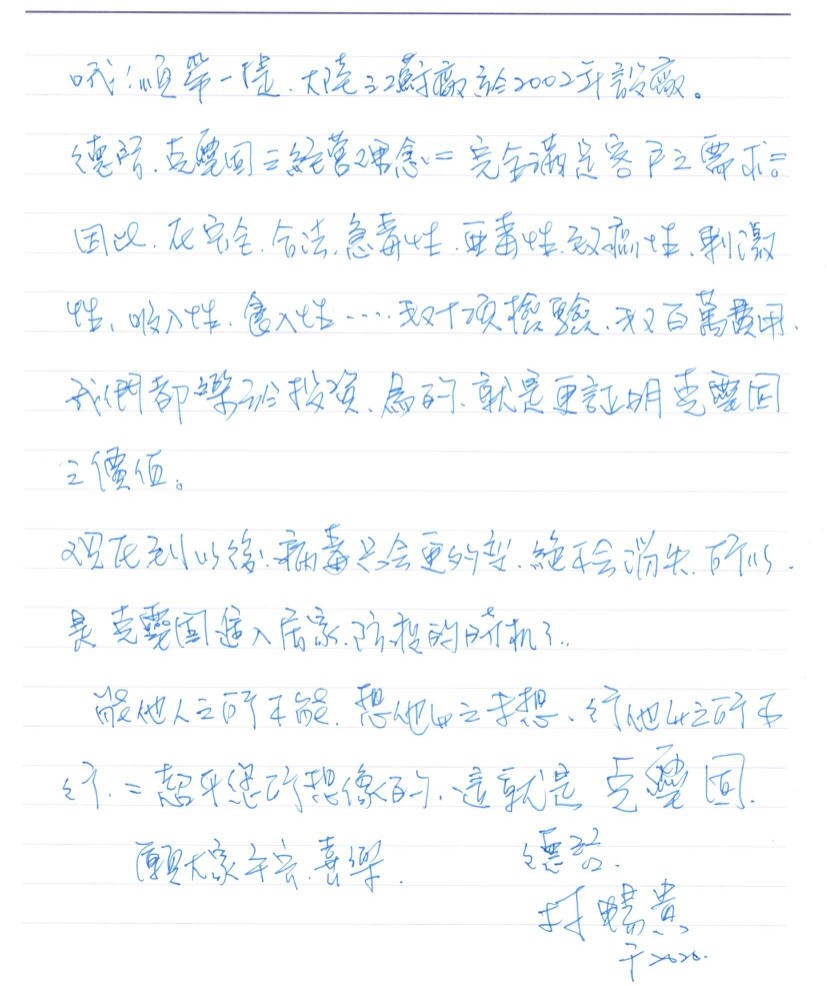 哦!順帶一提、大陸江蘇廠於2002年設廠。
德諮、克靈固之經營理念=完全滿足客戶之需求。
因此、在安全、合法、急毒性、亞毒性、致癌性、刺激
性、吸入性、食入性……數十項檢驗、數百萬費用、
我們都樂於投資、為的、就是更証明克靈固
之價值。
現在到以後、病毒只會更多的型、絕不會消失、所以、
是克靈固進入居家、防疫的時机了..
能他人之所不能、想他人之未想、行他人之所不
行、=超乎您所想像的、這就是克靈固.
願大家平安、喜樂.
德諮.
林暢貴
于2020.